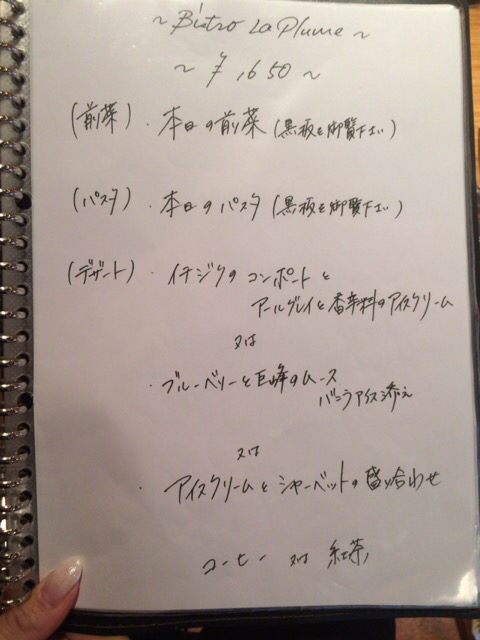 ~ Bistro La Plume ~
~ ¥1650 ~
(前菜) ・ 本日の前菜 (黒板を御覧下さい)
(パスタ) ・ 本日のパスタ (黒板を御覧下さい)
(デザート) ・ イチジクのコンポートと
アールグレイと香辛料のアイスクリーム
又は
・ ブルーベリーと巨峰のムース
バニラアイス添え
又は
・ アイスクリームとシャーベットの盛り合わせ
コーヒー 又は 紅茶